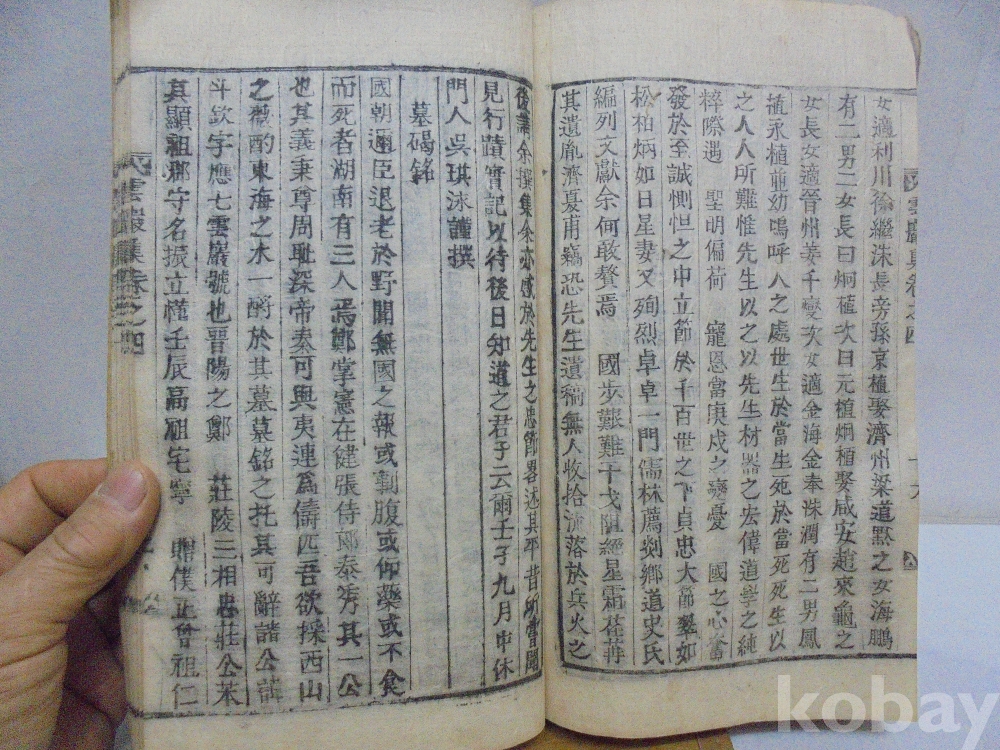 女適利川徐繼洙長房孫京植娶濟州梁道黙之女海鵬
有二男二女長曰炯植次曰元植炯植娶咸安趙來龜之
女長女適晉州姜千燮次女適金海金奉洙潤有二男鳳
植永植並幼嗚呼人之處世生於當生死於當死死生以
之人人所難惟先生以之以先生材器之宏偉道學之純
粹際遇 聖明偏荷 寵恩當庚戌之變憂 國之心奮
發於至誠惻怛之中立節於千百世之下貞忠大節翠如
松柏炳如日星妻又殉烈卓卓一門儒林薦剡鄉道史氏
編列文獻余何敢贅焉 國步艱難干戈阻經星霜荏苒
其遺胤濟憂甫竊恐先生遺稿無人收拾 落於兵火之
後 余撰集余亦感於先生之忠節畧述其平昔所嘗聞
見行蹟實記以待後日知道之君子云爾壬子九月中休
門人吳琪泳謹撰
墓碣銘
國朝遜臣退老於野聞無國之報或剚腹或仰藥或不食
而死者湖南有三人焉鄭掌憲在健張侍郎泰秀其一公
也其義秉尊周恥深帝秦可與夷連爲儔匹吾欲採西山
之薇酌東海之水一酹於其墓墓銘之托其可辭諸公諱
斗欽字應七雲巖號也晉陽之鄭 莊陵三相忠莊公苯
其顯祖郡守名振立慬壬辰高祖宅寧 贈僕正曾祖仁
雲巖集卷之四
雲巖集卷之四
kobay